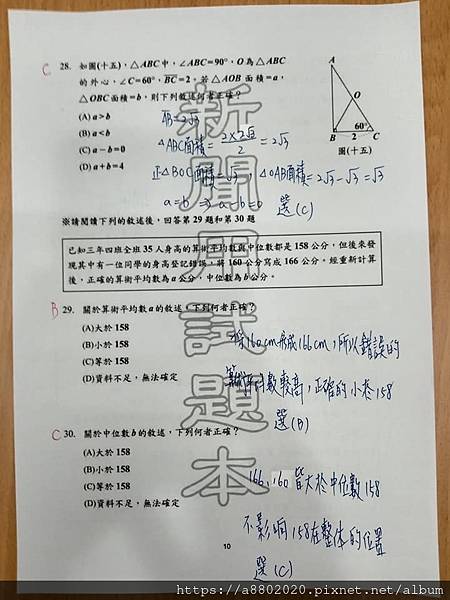 C 28. 如圖(十五),△ABC中,∠ABC=90°,O為△ABC
的外心,∠C=60°,BC=2。若△AOB面積=a,
△OBC面積=b,則下列敘述何者正確?
(A) a>b
(B) a<b
(C) a-b=0
(D) a+b=4
A
O
60°
B 2 C
圖(十五)
AB=2√3
△ABC面積=2×2√3/2=2√3
正△BOC面積=√3,△OAB面積=2√3-√3=√3
a=b ⇒ a-b=0
選(C)
※請閱讀下列的敘述後,回答第29題和第30題
已知三年四班全班35人身高的算術平均數與中位數都是158公分,但後來發
現其中有一位同學的身高登記錯誤,將160公分寫成166公分。經重新計算
後,正確的平均數為a公分,中位數為b公分。
B 29. 關於算術平均數a的敘述,下列何者正確?
(A)大於158
(B)小於158
(C)等於158
(D)資料不足,無法確定
160cm 寫成166cm,所以錯誤的
算術平均數較高,正確的小於158
選(B)
C 30. 關於中位數b的敘述,下列何者正確?
(A)大於158
(B)小於158
(C)等於158
(D)資料不足,無法確定
166,160皆大於中位數158
不影响158在整体的位置
選(C)
新聞用試題本
10
https://a8802020.pixnet.net/album